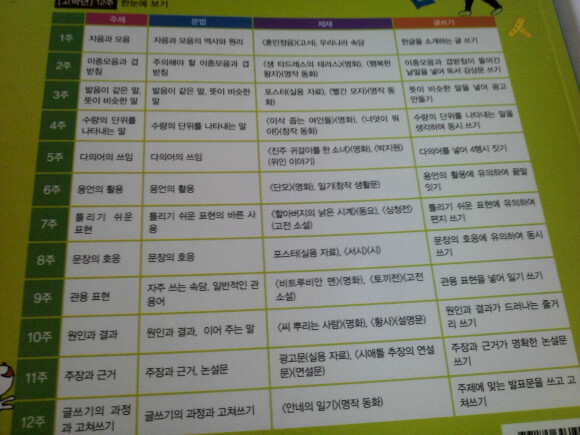 [고학년] 12주 한눈에 보기
주제 문법 제재 글쓰기
1주 자음과 모음 자음과 모음의 역사와 원리 〈훈민정음〉(고서), 우리나라 속담 한글을 소개하는 글 쓰기
2주 이중모음과 겹 주의해야 할 이중모음과 겹 〈생 타드레스의 테라스〉(명화), 〈행복한 이중모음과 겹받침이 들어간
받침 받침 왕자〉(명작 동화) 낱말을 넣어 독서 감상문 쓰기
3주 발음이 같은 말, 발음이 같은 말, 뜻이 비슷한 포스터(실용 자료), 〈빨간 모자〉(명작 동 뜻이 비슷한 말을 넣어 광고
뜻이 비슷한 말 말 화) 만들기
4주 수량의 단위를 수량의 단위를 나타내는 말 〈이삭 줍는 여인들〉(명화), 〈너덧이 뭐 수량의 단위를 나타내는 말을
나타내는 말 야〉(창작 동화) 생각하여 동시 쓰기
5주 다의어의 쓰임 다의어의 쓰임 〈진주 귀걸이를 한 소녀〉(명화), 〈박지원〉 다의어를 넣어 4행시 짓기
(위인 이야기)
6주 용언의 활용 용언의 활용 〈단오〉(명화), 일기(창작 생활문) 용언의 활용에 유의하여 끝말
잇기
7주 틀리기 쉬운 틀리기 쉬운 표현의 바른 사 〈할아버지의 낡은 시계〉(동요), 〈심청전〉 틀리기 쉬운 표현에 유의하여
표현 용 (고전 소설) 편지 쓰기
8주 문장의 호응 문장의 호응 포스터(실용 자료), 〈서시〉(시) 문장의 호응에 유의하여 동시
쓰기
9주 관용 표현 자주 쓰는 속담, 일반적인 관 〈비트루비안 맨〉(명화), 〈토끼전〉(고전 관용 표현을 넣어 일기 쓰기
용어 소설)
10주 원인과 결과 원인과 결과, 이어 주는 말 〈씨 뿌리는 사람〉(명화), 〈황사〉(설명문) 원인과 결과가 드러나는 줄거
리 쓰기
11주 주장과 근거 주장과 근거, 논설문 광고문(실용 자료), 〈시애틀 추장의 연설 주장과 근거가 명확한 논설문
문〉(연설문) 쓰기
12주 글쓰기의 과정 글쓰기의 과정과 고쳐쓰기 〈안네의 일기〉(명작 동화) 주제에 맞는 발표문을 쓰고 고
과 고쳐쓰기 쳐쓰기